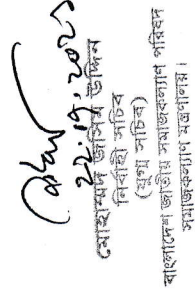 22.10.2023
মোহাম্মদ জমির উদ্দিন
নির্বাহী সচিব
(যুগ্ম সচিব)
বাংলাদেশ জাতীয় সমাজকল্যাণ পরিষদ
সমাজকল্যাণ মন্ত্রণালয়।